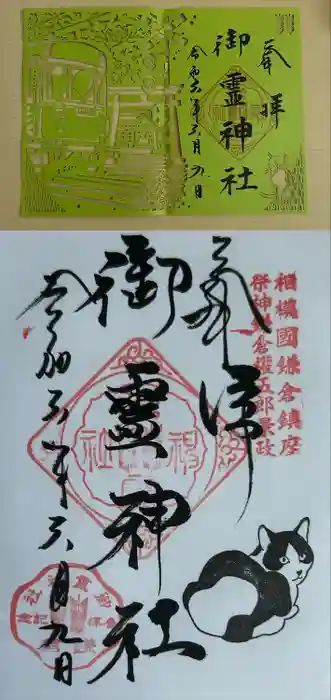 奉拝
御霊神社
令和六年六月九日
相模國鎌倉鎮座
祭神鎌倉権五郎景政
奉拝
御靈神社
令和六年六月九日